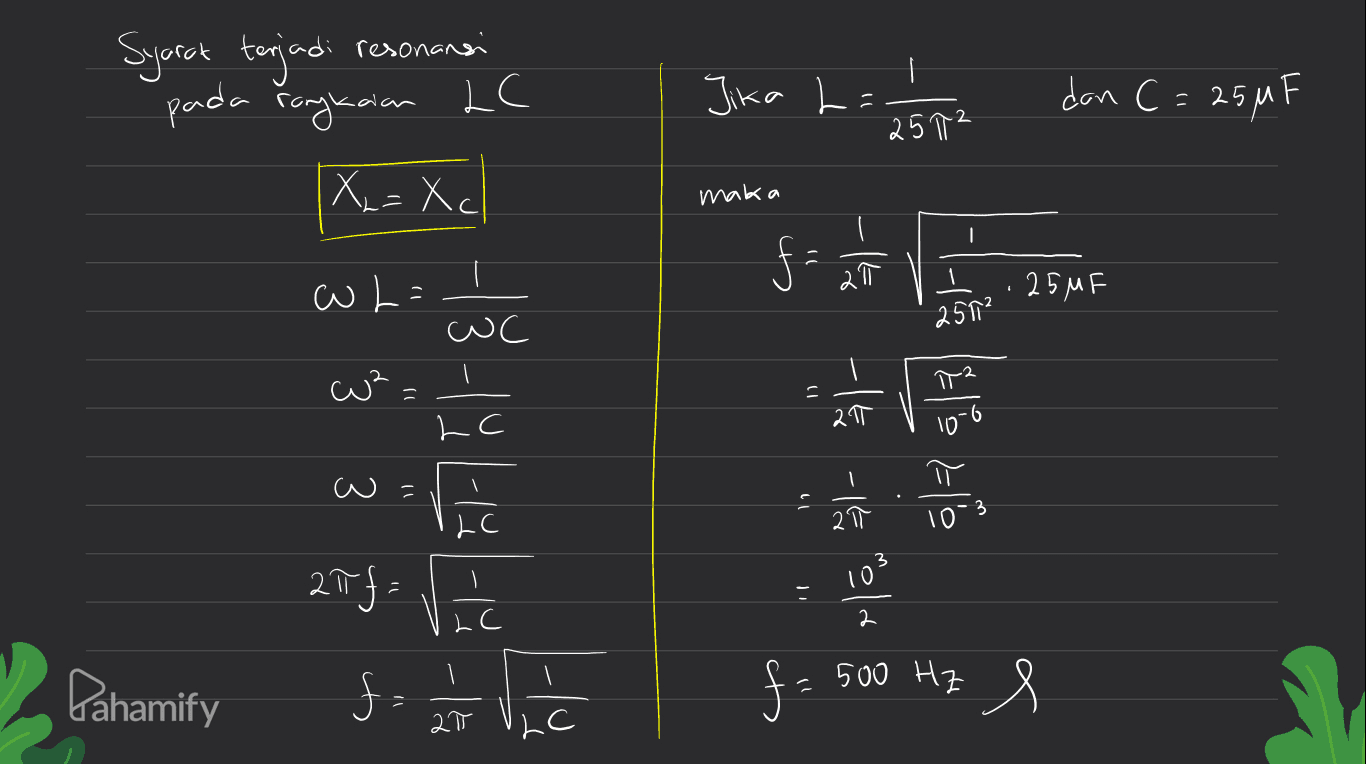 Syarat terjadi resonansi
pada rangkaian LC
X_L = X_C
ωL = 1/ωC
ω² = 1/LC
ω = √(1/LC)
2πf = √(1/LC)
f = 1/2π √(1/LC)
Jika L = 1/25π² dan C = 25 μF
maka
f = 1/2π √(1/(1/25π² . 25 μF))
= 1/2π √(π²/10⁻⁶)
= 1/2π . π/10⁻³
= 10³/2
f = 500 Hz
Pahamify